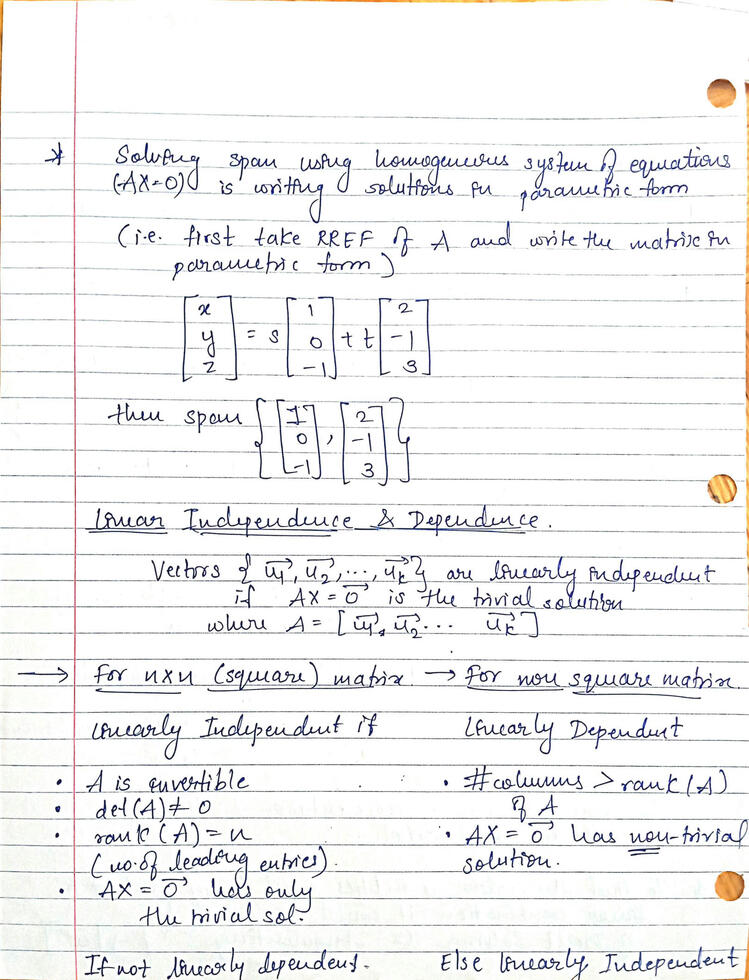 * Solving span using homogeneous system of equations
(AX=0) is writing solutions in parametric form
(i.e. first take RREF of A and write the matrix in
parametric form)
[x y z] = s [1 0 -1] + t [2 -1 3]
then span { [1 0 -1], [2 -1 3] }
Linear Independence & Dependence.
Vectors { u₁⃗, u₂⃗, ..., uₖ⃗ } are linearly independent
if AX = 0⃗ is the trivial solution
where A = [ u₁⃗, u₂⃗ ... uₖ⃗ ]
→ For nxn (square) matrix.
Linearly Independent if
• A is invertible
• det(A) ≠ 0
• rank (A) = n
(no. of leading entries).
• AX = 0⃗ has only
the trivial sol.
If not linearly dependent.
→ For non square matrix.
Linearly Dependent
• #columns > rank(A)
of A
• AX = 0⃗ has non-trivial
solution.
Else linearly Independent